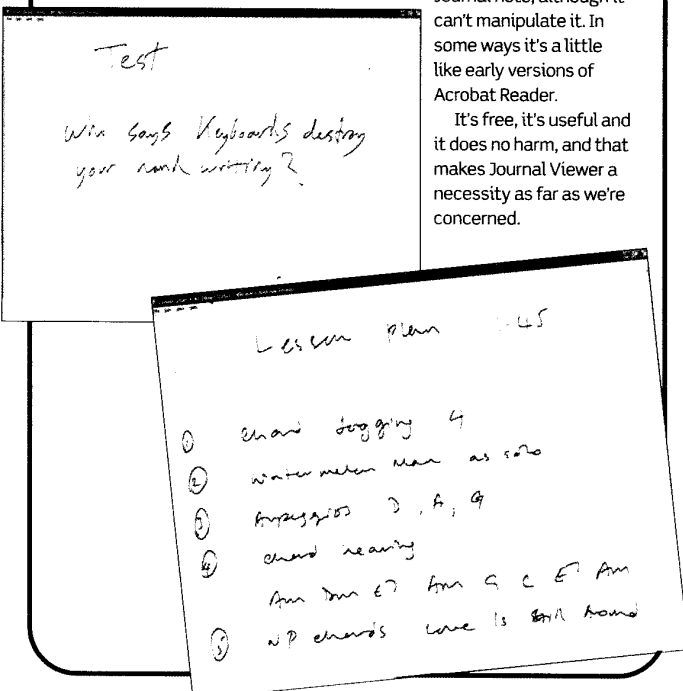 Journal note, although it
can't manipulate it. In
some ways it's a little
like early versions of
Acrobat Reader.
It's free, it's useful and
it does no harm, and that
makes Journal Viewer a
necessity as far as we're
concerned.
Test
Who says Keyboards destroy
your hand writing?
Lesson Plan 45
① chord jogging G
② watermelon man as solo
③ Arpeggios D, A, G
④ chord hearing
Am Dm E7 Am G C E7 Am
⑤ NP chords Love is around